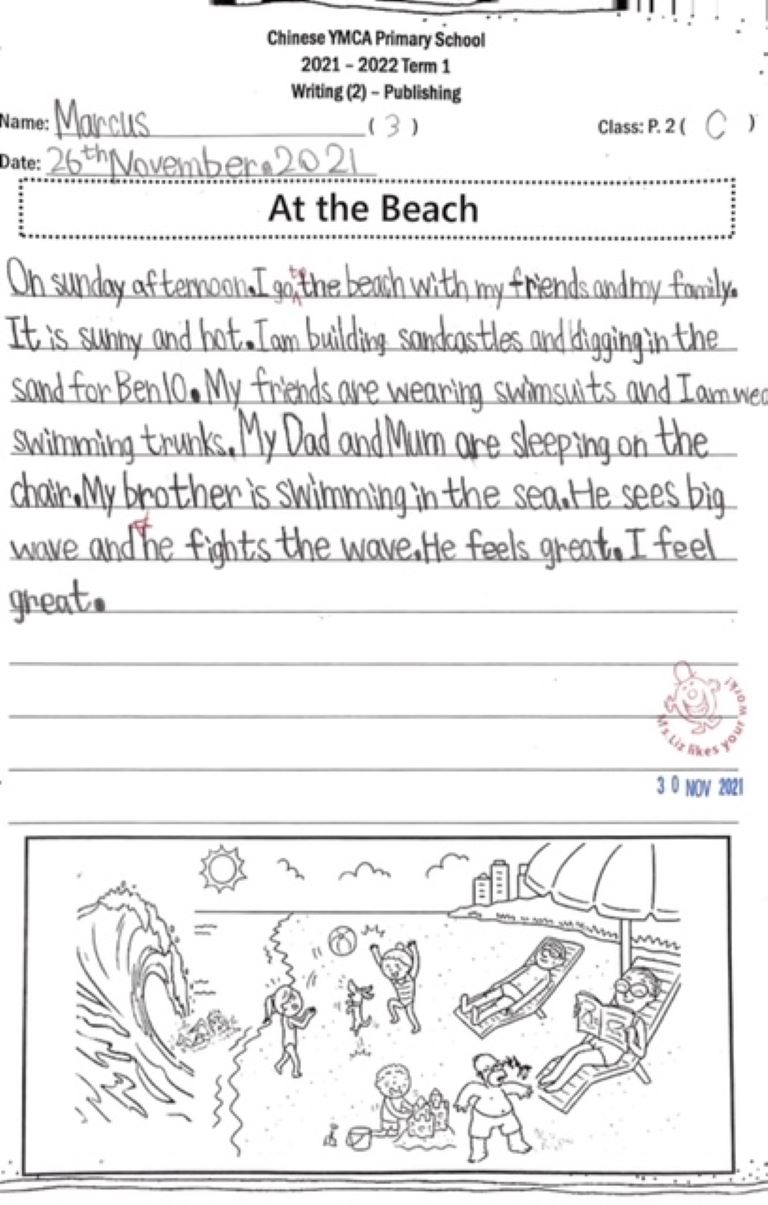 Chinese YMCA Primary School
2021 – 2022 Term 1
Writing (2) – Publishing
Name: Marcus ( 3 ) Class: P. 2 ( C )
Date: 26th November.2021
At the Beach
On sunday afternoon.I go to the beach with my friends and my family.
It is sunny and hot.I am building sandcastles and digging in the
sand for Ben10.My friends are wearing swimsuits and I am wea
swimming trunks.My Dad and Mum are sleeping on the
chair.My brother is swimming in the sea.He sees big
wave and he fights the wave.He feels great.I feel
great.
Ms. Liz likes your work!
30 NOV 2021